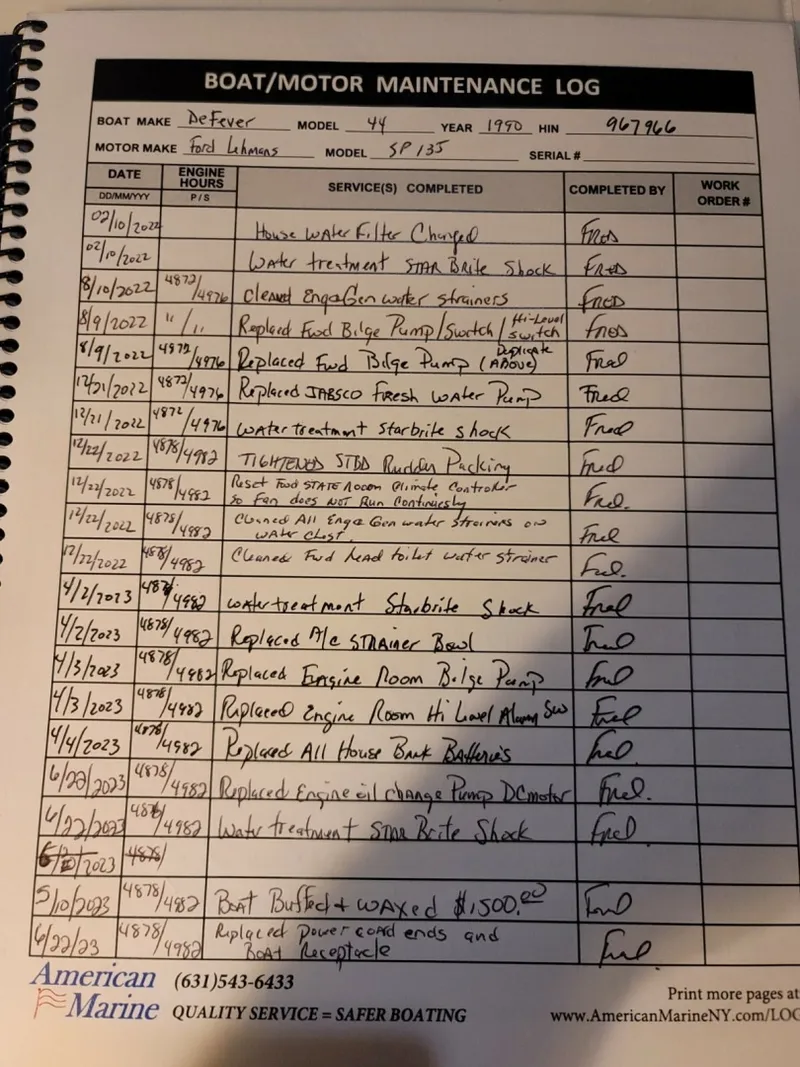 BOAT/MOTOR MAINTENANCE LOG
BOAT MAKE DeFever MODEL 44 YEAR 1990 HIN 967966
MOTOR MAKE Ford Lehmans MODEL SP 135 SERIAL #
DATE ENGINE HOURS SERVICE(S) COMPLETED COMPLETED BY WORK ORDER #
DD/MM/YYY P / S
02/10/2022 House Water Filter Changed Fred
02/10/2022 Water treatment STAR Brite Shock Fred
8/10/2022 4872/4976 Cleaned Eng & Gen water strainers Fred
8/9/2022 "/" Replaced Fwd Bilge Pump/Swotch/Hi-Level switch Fred
8/9/2022 4872/4976 Replaced Fwd Bilge Pump (Duplicate ABOVE) Fred
12/21/2022 4872/4976 Replaced JABSCO Fresh Water Pump Fred
12/21/2022 4872/4976 Water treatment Starbrite Shock Fred
12/22/2022 4878/4982 TIGHTENED STBD Rudder Packing Fred
12/22/2022 4878/4982 Reset Fwd STATE Room Climate Controller
So Fan does NOT Run Continuesly Fred.
12/22/2022 4878/4982 Cleaned All Eng & Gen water strainers on
water chest. Fred
12/22/2022 4878/4982 Cleaned Fwd head toilet water strainer Fred.
4/2/2023 4878/4982 Water treatment Starbrite Shock Fred
4/2/2023 4878/4982 Replaced A/c STRAINER Bowl Fred
4/3/2023 4878/4982 Replaced Engine Room Bilge Pump Fred
4/3/2023 4878/4982 Replaced Engine Room Hi Level Alarm Sw Fred
4/4/2023 4878/4982 Replaced All House Bank Batteries Fred.
6/22/2023 4878/4982 Replaced Engine oil change Pump DC motor Fred.
6/22/2023 4878/4982 Water treatment STAR Brite Shock Fred
/2023 4878/
5/10/2023 4878/4982 Boat Buffed + WAXED $1500.00 Fred
6/22/23 4878/4982 Replaced power cord ends and
Boat Receptacle Fred.
American Marine (631)543-6433
QUALITY SERVICE = SAFER BOATING
Print more pages at
www.AmericanMarineNY.com/LOG